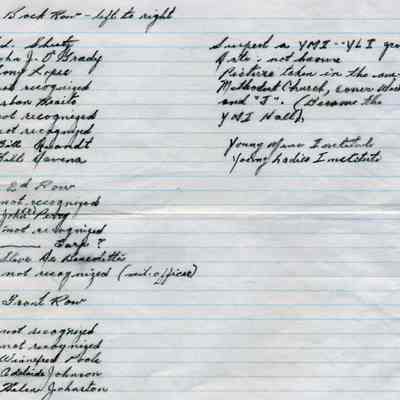 Back Row - left to right
Ed. Shuty
John J. O'Grady
Tony Lopes
not recognized
not recognized
not recognized
Bill Quandt
Bill Davena
2d Row
not recognized
John Perry
not recognized
Earp ?
Steve De Benedetti
not recognized (mil. officer)
Front Row
not recognized
not recognized
Winnefred Poole
Adelaide Johnson
Helen Johnston
Suspect a YMI -- YLI gro
date - not known
Picture taken in the
Methodist Church, corner
and "J". (Became the
YMI Hall).
Young Mens Institute
Young Ladies Institute